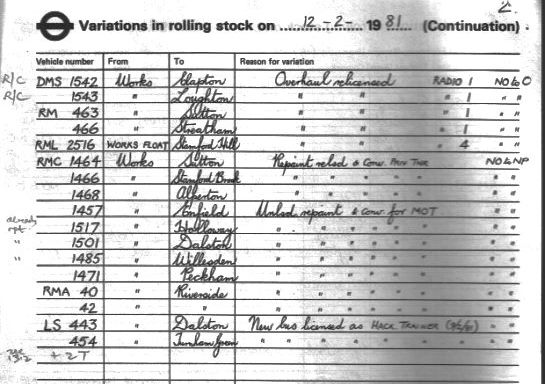 2
Variations in rolling stock on 12-2- 1981 (Continuation)
Vehicle number From To Reason for variation
R/C DMS 1542 Works Clapton Overhaul relicensed RADIO 1 NO to O
R/C 1543 " Loughton " " " 1 " "
RM 463 " Sutton " " " 1 " "
466 " Streatham " " " 1 " "
RML 2516 WORKS FLOAT Stamford Hill " " " 4 " "
RMC 1464 Works Sutton Repaint relsd & Conv. NO to NP
1466 " Stamford Brook " " " " " "
1468 " Alperton " " " " " "
1457 " Enfield Unlsd repaint & conv for MOT " "
already rpt 1517 " Holloway " " " " " " "
" 1501 " Dalston " " " " " " "
" 1485 " Willesden " " " " " " "
1471 " Peckham " " " " " " "
RMA 40 " Riverside " " " " " " "
42 " " " " " " " " "
LS 443 " Dalston New bus licensed as HACK TRAINER " "
454 " Turnham Green " " " " " " " "
+ 2T